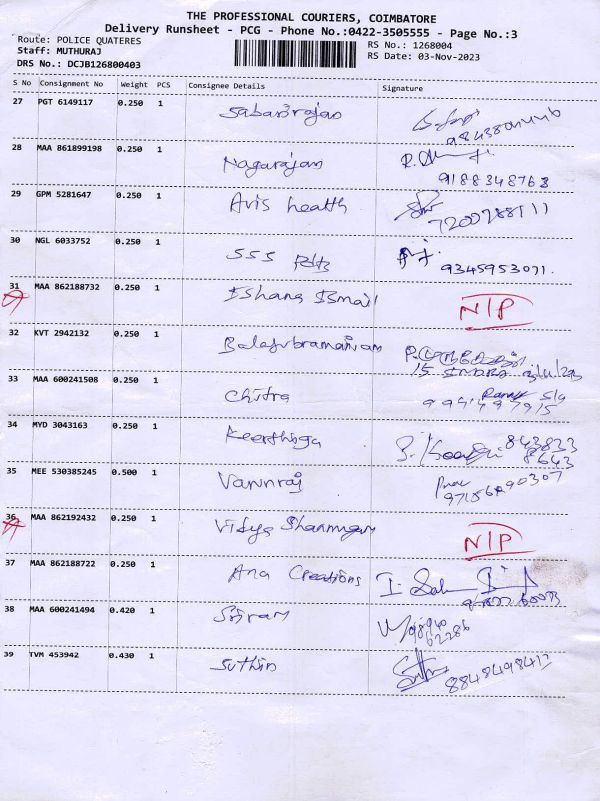 THE PROFESSIONAL COURIERS, COIMBATORE
Delivery Runsheet - PCG - Phone No.:0422-3505555 - Page No.:3
Route: POLICE QUATERES
RS No.: 1268004
Staff: MUTHURAJ
RS Date: 03-Nov-2023
DRS No.: DCJB126800403
S No Consignment No Weight PCS Consignee Details Signature
27 PGT 6149117 0.250 1 Sabarirajan
28 MAA 861899198 0.250 1 Nagarajan
9188348768
29 GPM 5281647 0.250 1 Avis health
7200288111
30 NGL 6033752 0.250 1 SSS
9345953071.
31 MAA 862188732 0.250 1 Ishana Ismail N/P
32 KVT 2942132 0.250 1 Balasubramaniyam
33 MAA 600241508 0.250 1 Chitra
34 MYD 3043163 0.250 1 Keerthiga
843833
8643
35 MEE 530385245 0.500 1 Vannraj
36 MAA 862192432 0.250 1 Vidya Shanmugam N/P
37 MAA 862188722 0.250 1 Ana Creations
38 MAA 600241494 0.420 1 Sriram
98940
62286
39 TVM 453942 0.430 1 Suthin